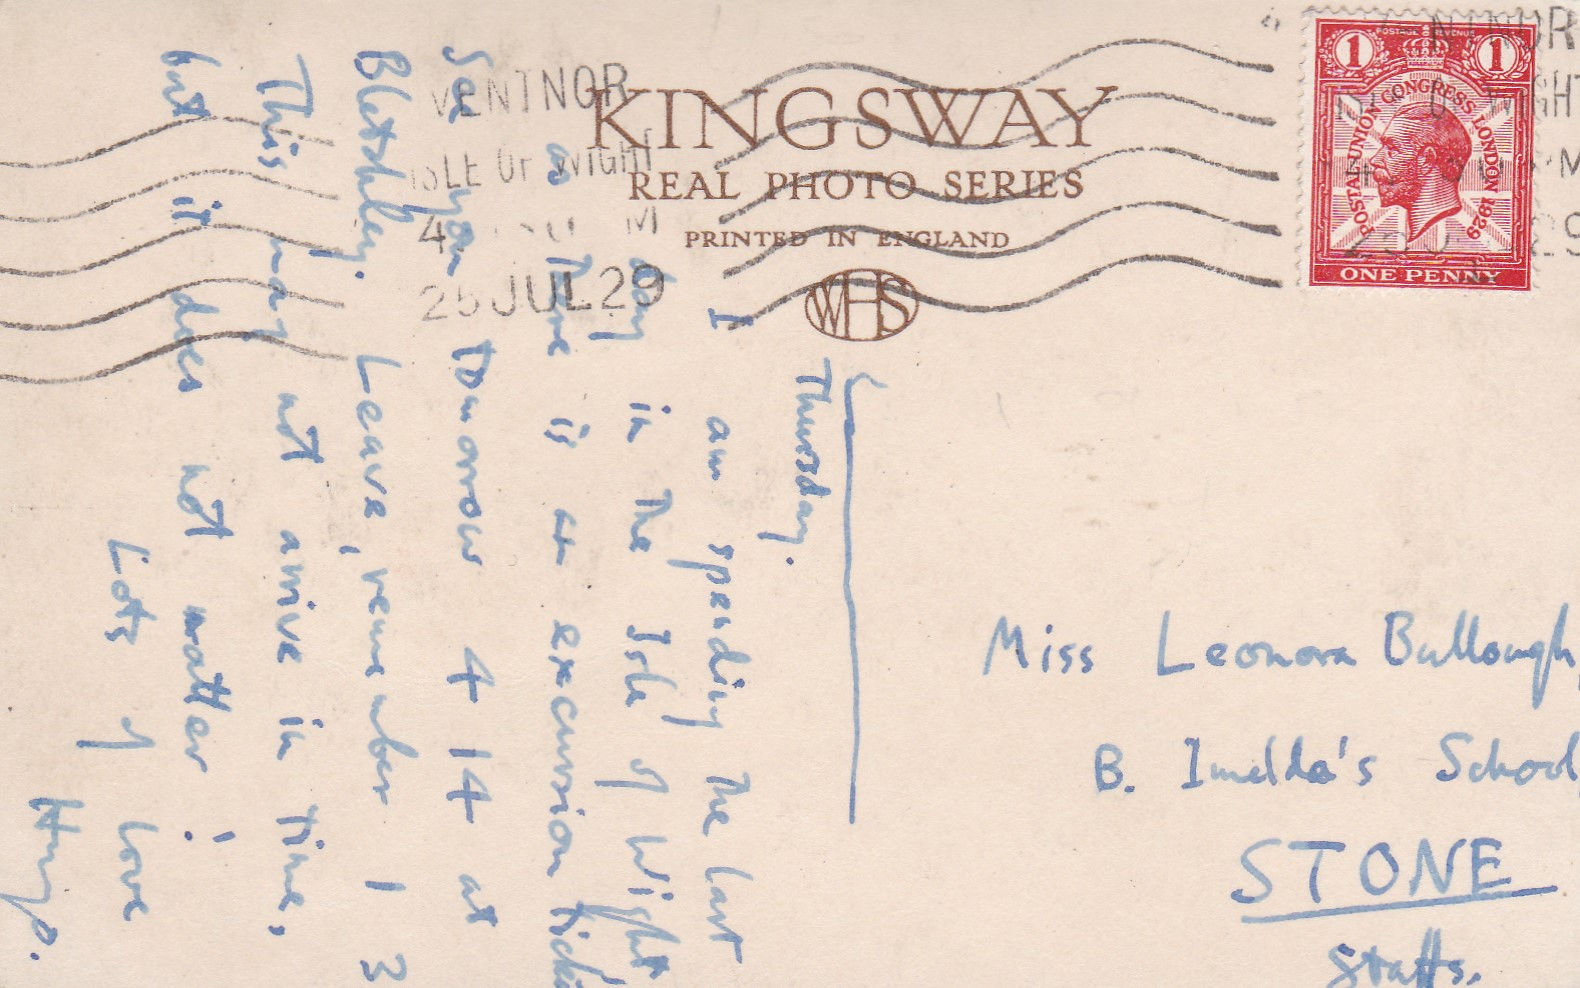 KINGSWAY
REAL PHOTO SERIES
PRINTED IN ENGLAND
WHS
VENTNOR
ISLE OF WIGHT
4 M
25 JUL 29
POSTAGE REVENUE
1 1
POSTAL UNION CONGRESS LONDON 1929
ONE PENNY
Thursday.
I am spending the last
day in the Isle of Wight
as there is an excursion
See you tomorrow 4 14 at
Bletchley. Leave, remember 1 3
This may not arrive in time,
but it does not matter!
Lots of love
Hugo.
Miss Leonora Bullough,
B. Imelda's School,
STONE
Staffs.